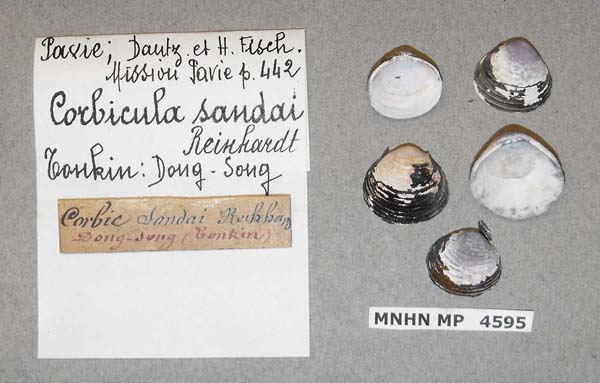 Pavie; Dautz. et H. Fisch.
Mission Pavie p. 442
Corbicula sandai
Reinhardt
Tonkin: Dong-Song
Corbic Sandai Reinhard
Dong-song (Tonkin)
MNHN MP 4595